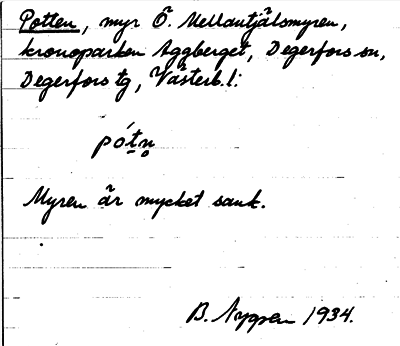 Potten, myr Ö. Mellantjälsmyren,
kronoparken Aggberget, Degerfors sn,
Degerfors tg, Västerb. l:
pótn̥
Myren är mycket sank.
B. Nygren 1934.